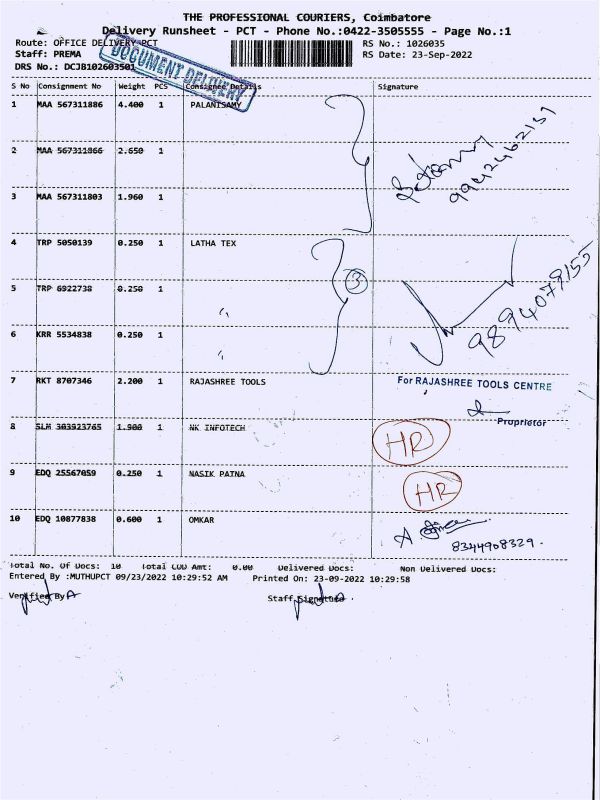 THE PROFESSIONAL COURIERS, Coimbatore
Delivery Runsheet - PCT - Phone No.:0422-3505555 - Page No.:1
Route: OFFICE DELIVERY PCT
RS No.: 1026035
Staff: PREMA
RS Date: 23-Sep-2022
DRS No.: DCJB102603501
DOCUMENT DELIVERY
S No Consignment No Weight PCS Consignee Details Signature
1 MAA 567311886 4.400 1 PALANISAMY
2 MAA 567311866 2.650 1
9942462151
3 MAA 567311803 1.960 1
4 TRP 5050139 0.250 1 LATHA TEX
5 TRP 6922738 0.250 1 " 3
9894079155
6 KRR 5534838 0.250 1 "
7 RKT 8707346 2.200 1 RAJASHREE TOOLS For RAJASHREE TOOLS CENTRE
Proprietor
8 SLM 303923765 1.900 1 NK INFOTECH HR
9 EDQ 25567059 0.250 1 NASIK PATNA HR
10 EDQ 10877838 0.600 1 OMKAR
8344908329.
Total No. Of Docs: 10 Total COD Amt: 0.00 Delivered Docs: Non Delivered Docs:
Entered By :MUTHUPCT 09/23/2022 10:29:52 AM Printed On: 23-09-2022 10:29:58
Verified By Staff Signature